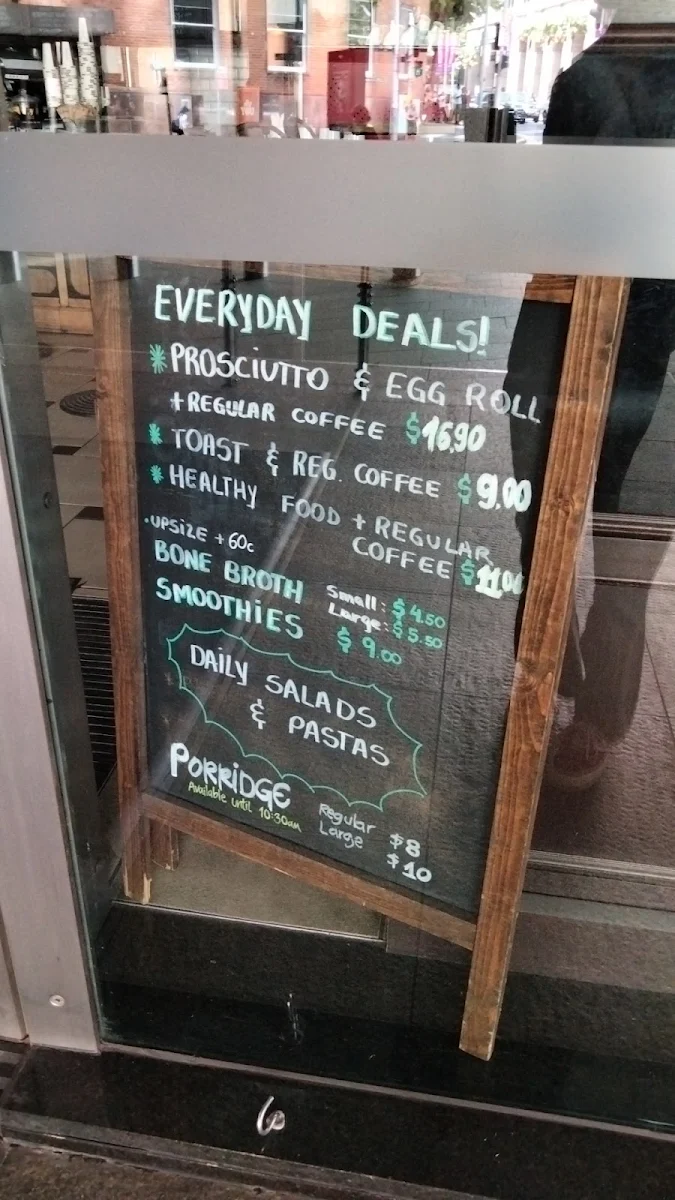 EVERYDAY DEALS!
* PROSCIUTTO & EGG ROLL
+ REGULAR COFFEE $16.90
* TOAST & REG. COFFEE $9.00
* HEALTHY FOOD + REGULAR
COFFEE $11.00
·UPSIZE +60c
BONE BROTH Small: $4.50
Large: $5.50
SMOOTHiES $9.00
DAILY SALADS
& PASTAS
PORRiDGE
Available until 10:30am
Regular $8
Large $10